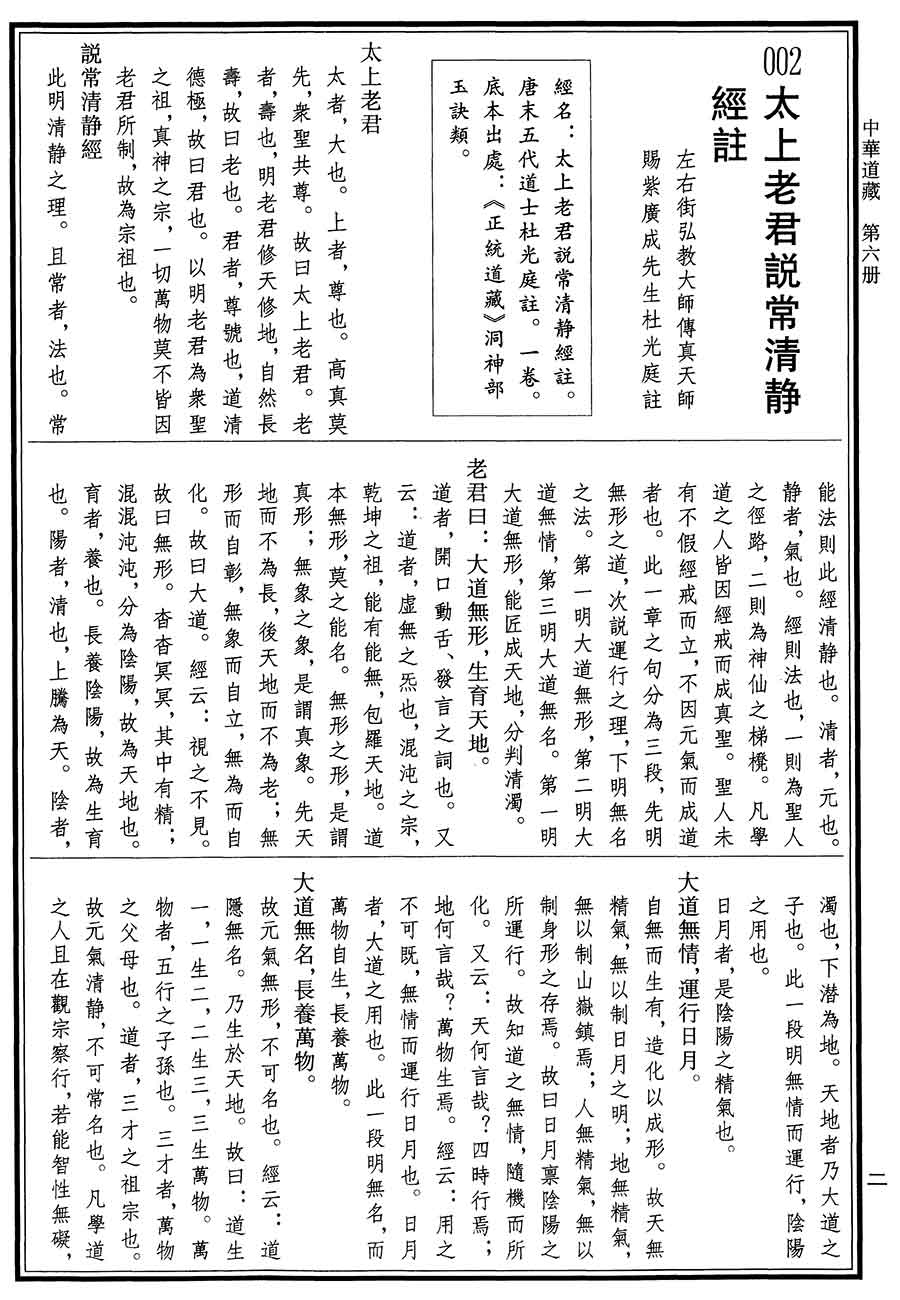 中華道藏　第六册
002太上老君説常清静
經註
左右街弘教大師傳真天師
賜紫廣成先生杜光庭註
經名：太上老君説常清静經註。
唐末五代道士杜光庭註。一卷。
底本出處：《正統道藏》洞神部
玉訣類。
太上老君
太者，大也。上者，尊也。高真莫
先，衆聖共尊。故曰太上老君。老
者，壽也，明老君修天修地，自然長
壽，故曰老也。君者，尊號也，道清
德極，故曰君也。以明老君為衆聖
之祖，真神之宗，一切萬物莫不皆因
老君所制，故為宗祖也。
説常清静經
此明清静之理。且常者，法也。常
能法則此經清静也。清者，元也。
静者，氣也。經則法也，一則為聖人
之徑路，二則為神仙之梯櫈。凡學
道之人皆因經戒而成真聖。聖人未
有不假經戒而立，不因元氣而成道
者也。此一章之句分為三段，先明
無形之道，次説運行之理，下明無名
之法。第一明大道無形，第二明大
道無情，第三明大道無名。第一明
大道無形，能匠成天地，分判清濁。
老君曰：大道無形，生育天地。
道者，開口動舌、發言之詞也。又
云：道者，虛無之炁也，混沌之宗，
乾坤之祖，能有能無，包羅天地。道
本無形，莫之能名。無形之形，是謂
真形；無象之象，是謂真象。先天
地而不為長，後天地而不為老；無
形而自彰，無象而自立，無為而自
化。故曰大道。經云：視之不見。
故曰無形。杳杳冥冥，其中有精；
混混沌沌，分為陰陽，故為天地也。
育者，養也。長養陰陽，故為生育
也。陽者，清也，上騰為天。陰者，
濁也，下潜為地。天地者乃大道之
子也。此一段明無情而運行，陰陽
之用也。
日月者，是陰陽之精氣也。
大道無情，運行日月。
自無而生有，造化以成形。故天無
精氣，無以制日月之明；地無精氣，
無以制山嶽鎮焉；人無精氣，無以
制身形之存焉。故曰日月禀陰陽之
所運行。故知道之無情，隨機而所
化。又云：天何言哉？四時行焉；
地何言哉？萬物生焉。經云：用之
不可既，無情而運行日月也。日月
者，大道之用也。此一段明無名，而
萬物自生，長養萬物。
大道無名，長養萬物。
故元氣無形，不可名也。經云：道
隱無名。乃生於天地。故曰：道生
一，一生二，二生三，三生萬物。萬
物者，五行之子孫也。三才者，萬物
之父母也。道者，三才之祖宗也。
故元氣清静，不可常名也。凡學道
之人且在觀宗察行，若能智性無礙，
二